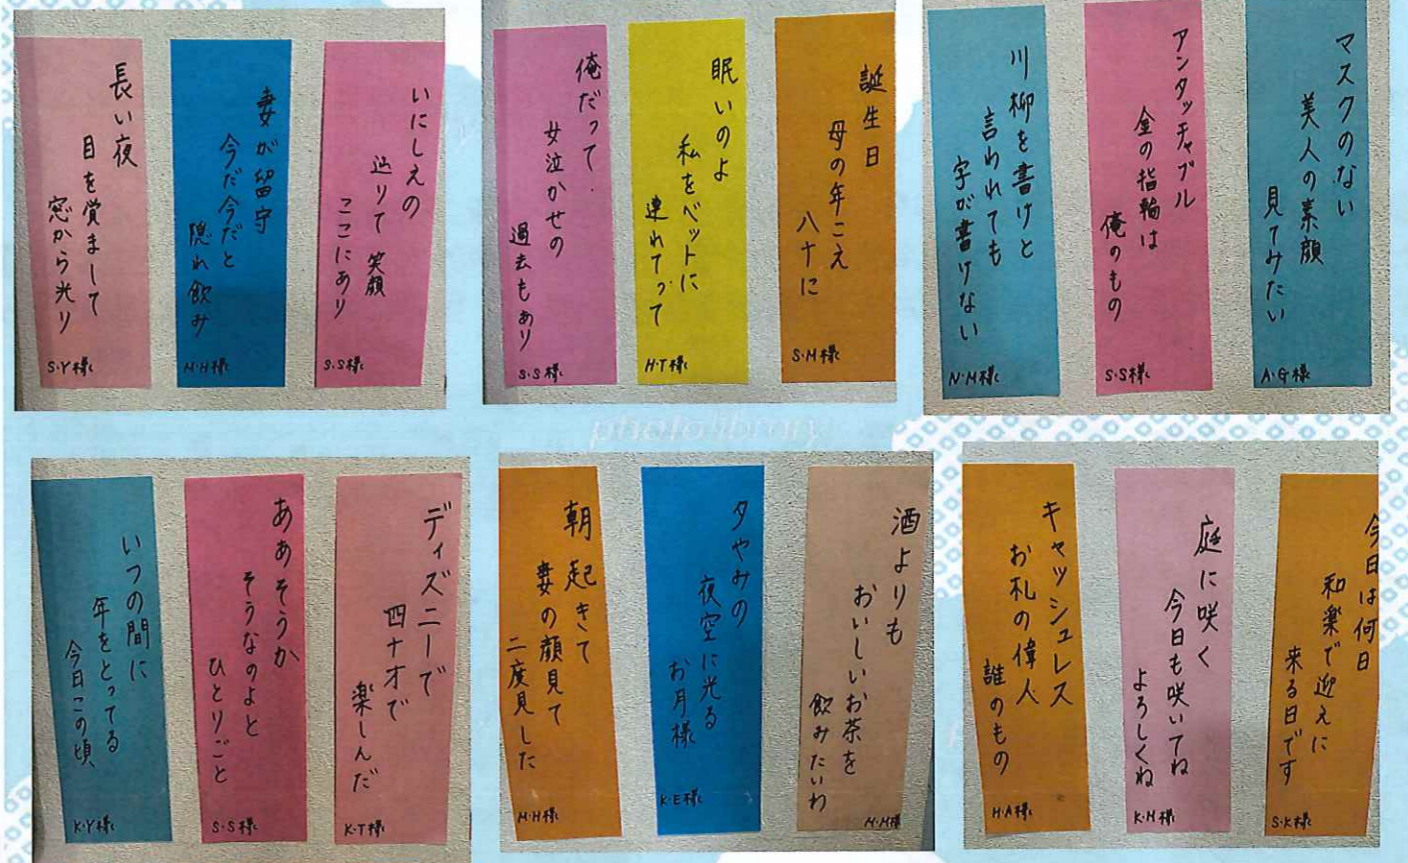 いにしえの
巡りて 笑顔
ここにあり
S・S様
妻が留守
今だ今だと
隠れ飲み
M・H様
長い夜
目を覚まして
窓から光り
S・Y様
誕生日
母の年こえ
八十に
S・M様
眠いのよ
私をベットに
連れてって
H・T様
俺だって
女泣かせの
過去もあり
S・S様
マスクのない
美人の素顔
見てみたい
A・G様
アンタッチャブル
金の指輪は
俺のもの
S・S様
川柳を書けと
言われても
字が書けない
N・M様
ディズニーで
四十才で
楽しんだ
K・T様
ああそうか
そうなのよと
ひとりごと
S・S様
いつの間に
年をとってる
今日この頃
K・Y様
酒よりも
おいしいお茶を
飲みたいわ
M・M様
夕やみの
夜空に光る
お月様
K・E様
朝起きて
妻の顔見て
二度見した
M・H様
今日は何日
和楽で迎えに
来る日です
S・K様
庭に咲く
今日も咲いてね
よろしくね
K・M様
キャッシュレス
お札の偉人
誰のもの
H・A様
photolibrary